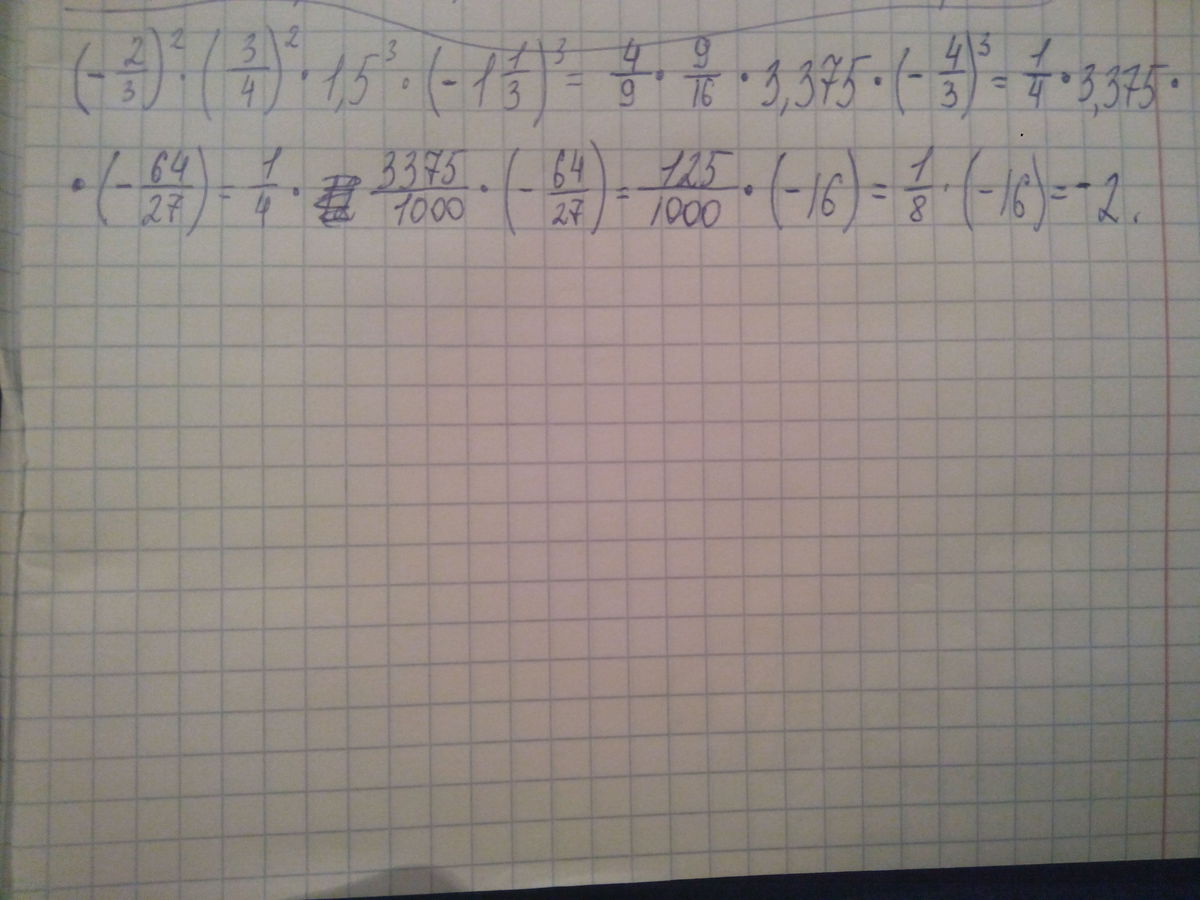 (-2/3)² · (3/4)² · 1,5³ · (-1 1/3)³ = 4/9 · 9/16 · 3,375 · (-4/3)³ = 1/4 · 3,375 ·
· (-64/27) = 1/4 · 3375/1000 · (-64/27) = 125/1000 · (-16) = 1/8 · (-16) = -2.